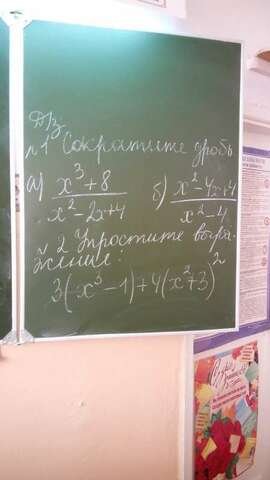 Д/з.
№1 Сократите дробь
а) x³+8 / x²-2x+4 б) x²-4x+4 / x²-4
№2 Упростите выра-
жение:
3(x³-1)+4(x²+3)²